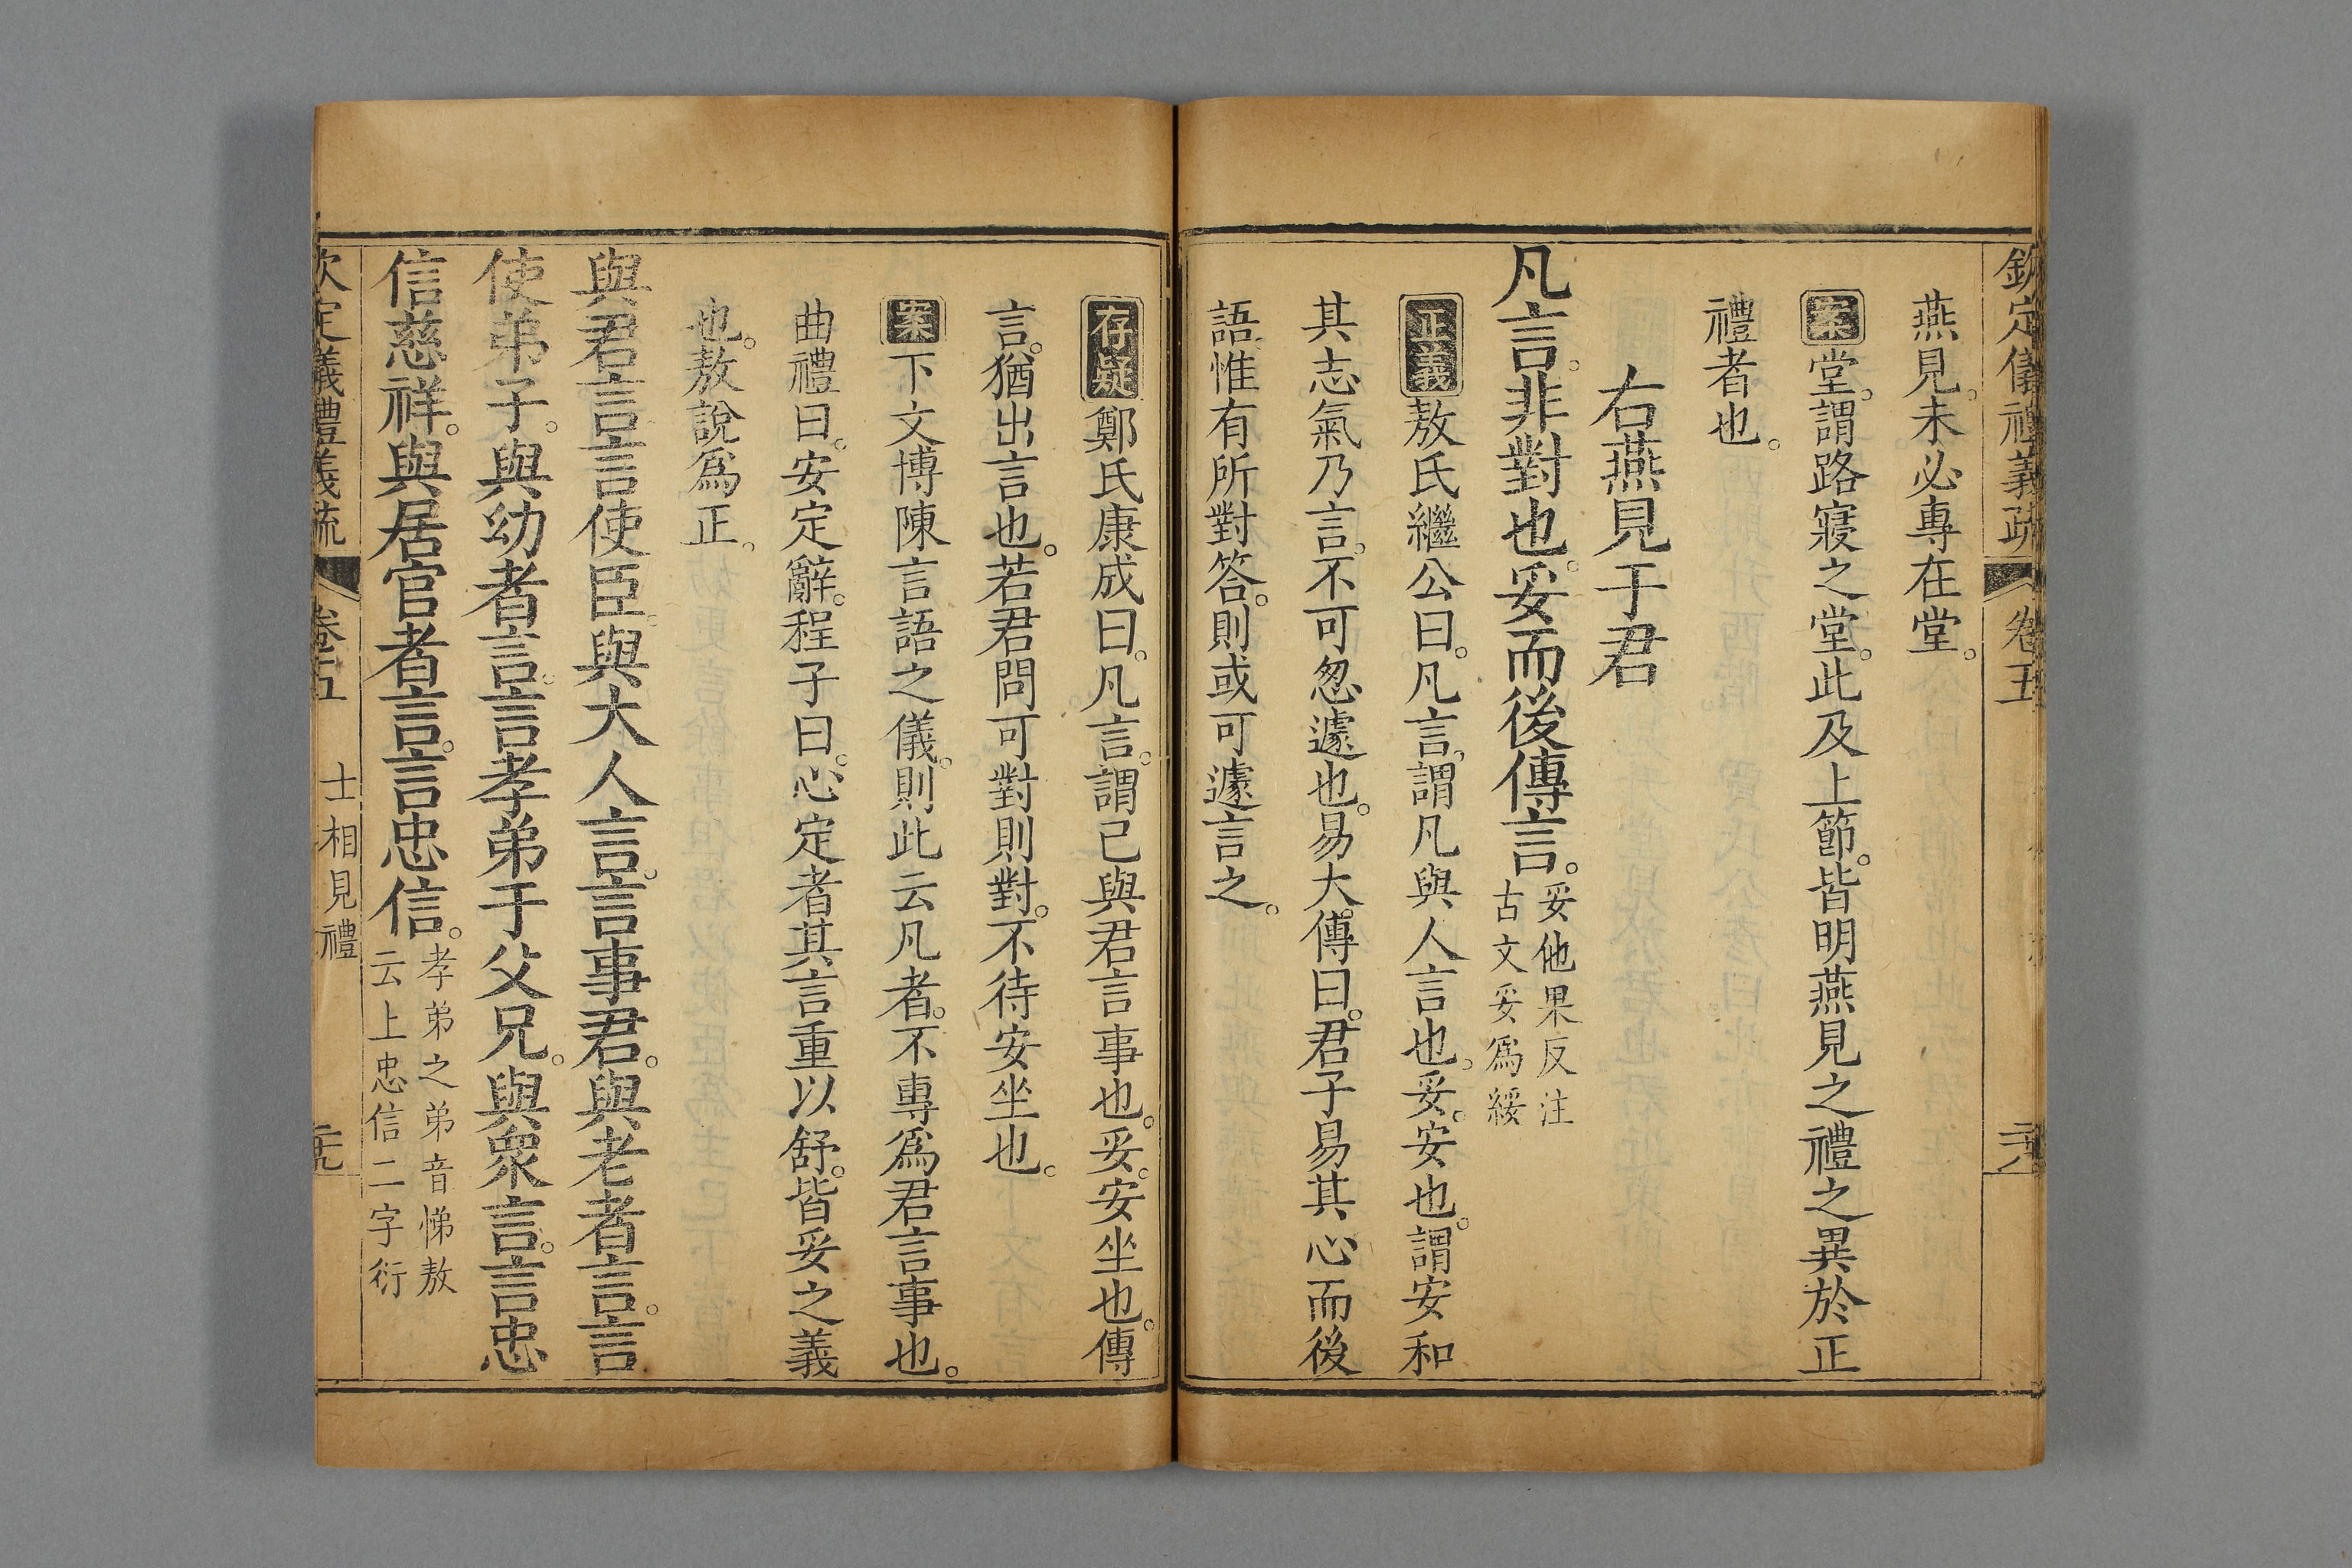 欽定儀禮義疏 卷五 二十八
燕見。未必專在堂。
案堂。謂路寢之堂。此及上節。皆明燕見之禮之異於正
禮者也。
右燕見于君
凡言。非對也。妥而後傳言。妥他果反注古文妥爲綏
正義敖氏繼公曰。凡言。謂凡與人言也。妥。安也。謂安和
其志氣乃言。不可怱遽也。易大傳曰。君子易其心而後
語惟有所對答。則或可遽言之。
存疑鄭氏康成曰。凡言。謂已與君言事也。妥。安坐也。傳
言。猶出言也。若君問可對則對。不待安坐也。
案下文博陳言語之儀。則此云凡者。不專爲君言事也。
曲禮曰。安定辭。程子曰。心定者其言重以舒。皆妥之義
也。敖說爲正。
與君言言使臣。與大人言。言事君。與老者言。言
使弟子。與幼者言。言孝弟于父兄。與衆言。言忠
信慈祥。與居官者言。言忠信。孝弟之弟音悌敖云上忠信二字衍
欽定儀禮義疏 卷五 士相見禮 二十九